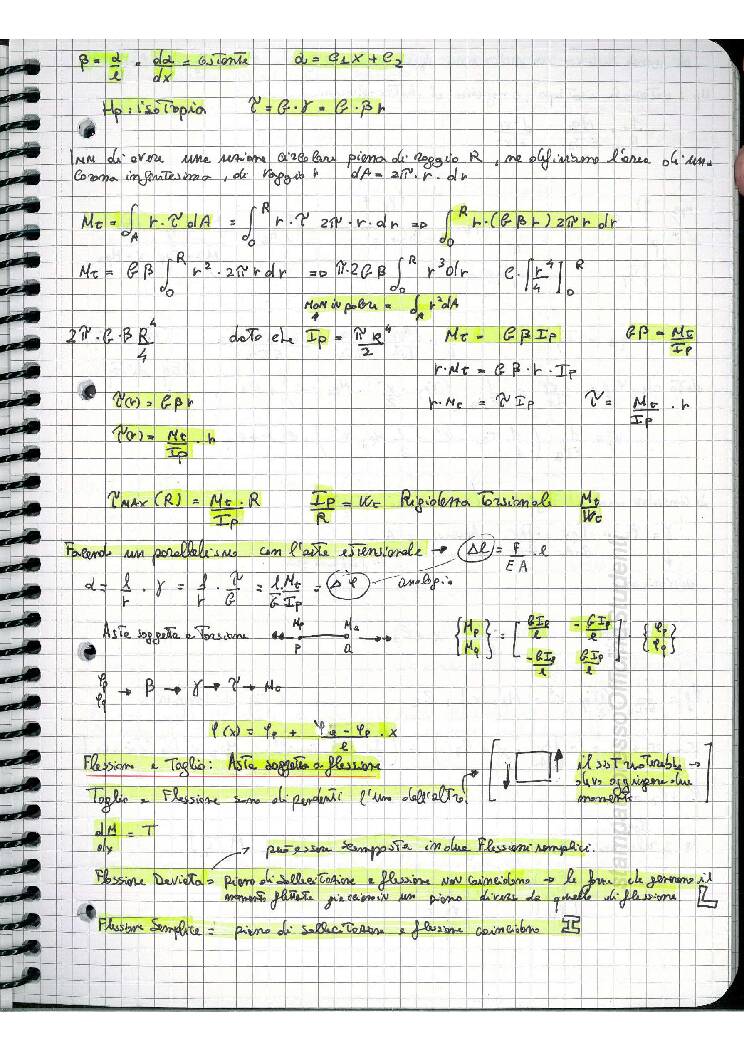 β = α/l = dα/dx = costante   α = C1x + C2
Hp: isotropia   τ = G·γ = G·β r
Imm di avere una sezione circolare piena di raggio R, ne definiamo l'area di una
corona infinitesima, di raggio r   dA = 2π·r·dr
Mt = ∫A r·τ dA = ∫0^R r·τ 2π·r·dr => ∫0^R r·(Gβr) 2π r dr
Mt = Gβ ∫0^R r²·2π r dr => π·2Gβ ∫0^R r³ dr   C·[r⁴/4]0^R
Mom in polare = ∫A r² dA
2π·G·β R⁴/4   dato che Ip = πR⁴/2   Mt = GβIp   Gβ = Mt/Ip
r·Mt = Gβ·r·Ip
τ(r) = Gβr   r·Mt = τ Ip   τ = Mt/Ip · r
τ(r) = Mt/Ip · r
τMAX (R) = Mt/Ip · R   Ip/R = Wt Rigidezza Torsionale Mt/Wt
Facendo un parallelismo con l'asta estensionale → Δl = F/EA · l
α = l/r · γ = l/r · τ/G = l/G Mt/Ip = Δφ   analogia
Asta soggetta a Torsione   Mp   Mq   P   Q   {Mp Mq} = [GIp/l  -GIp/l  -GIp/l  GIp/l] · {φp φq}
φp φq → β → γ → τ → Mt
φ(x) = φp + φq - φp/l · x
Flessione e Taglio: Asta soggetta a flessione   [il sist ruoterebbe → devo aggiungere due momenti]
Taglio e Flessione sono dipendenti l'uno dall'altro!
dM/dx = T
può essere scomposta in due Flessioni semplici.
Flessione Deviata = piano di sollecitazione e flessione non coincidono → le forze che generano il
momento flettente giacciono in un piano diverso da quello di flessione
Flessione Semplice = piano di sollecitazione e flessione coincidono